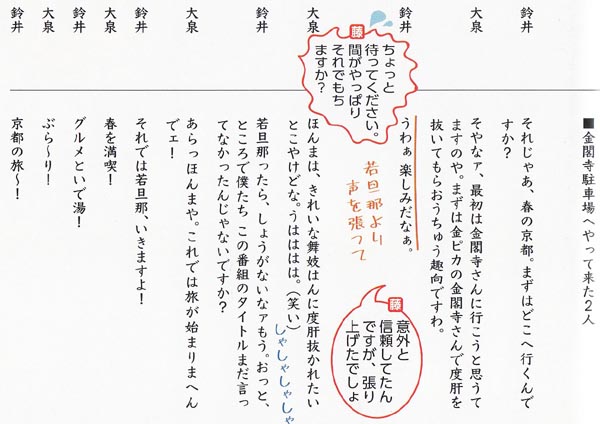 ■金閣寺駐車場へやって来た2人
鈴井
それじゃあ、春の京都。まずはどこへ行くんで
すか?
大泉
そやなァ、最初は金閣寺さんに行こうと思うて
ますのや。まずは金ピカの金閣寺さんで度肝を
抜いてもらおうちゅう趣向ですわ。
鈴井
うわぁ楽しみだなぁ。
藤
意外と
信頼してたん
ですが、張り
上げたでしょ
若旦那より
声を張って
藤
ちょっと
待ってください。
間がやっぱり
それでもち
ますか?
大泉
ほんまは、きれいな舞妓はんに度肝抜かれたい
とこやけどな。うはははは。(笑い)
しゃしゃしゃしゃ
鈴井
若旦那ったら、しょうがないなァもう。おっと、
ところで僕たち この番組のタイトルまだ言っ
てなかったんじゃないですか?
大泉
あらっほんまや。これでは旅が始まりまへん
でェ!
鈴井
それでは若旦那、いきますよ!
大泉
春を満喫!
鈴井
グルメといで湯!
大泉
ぶら〜り!
鈴井
京都の旅〜!